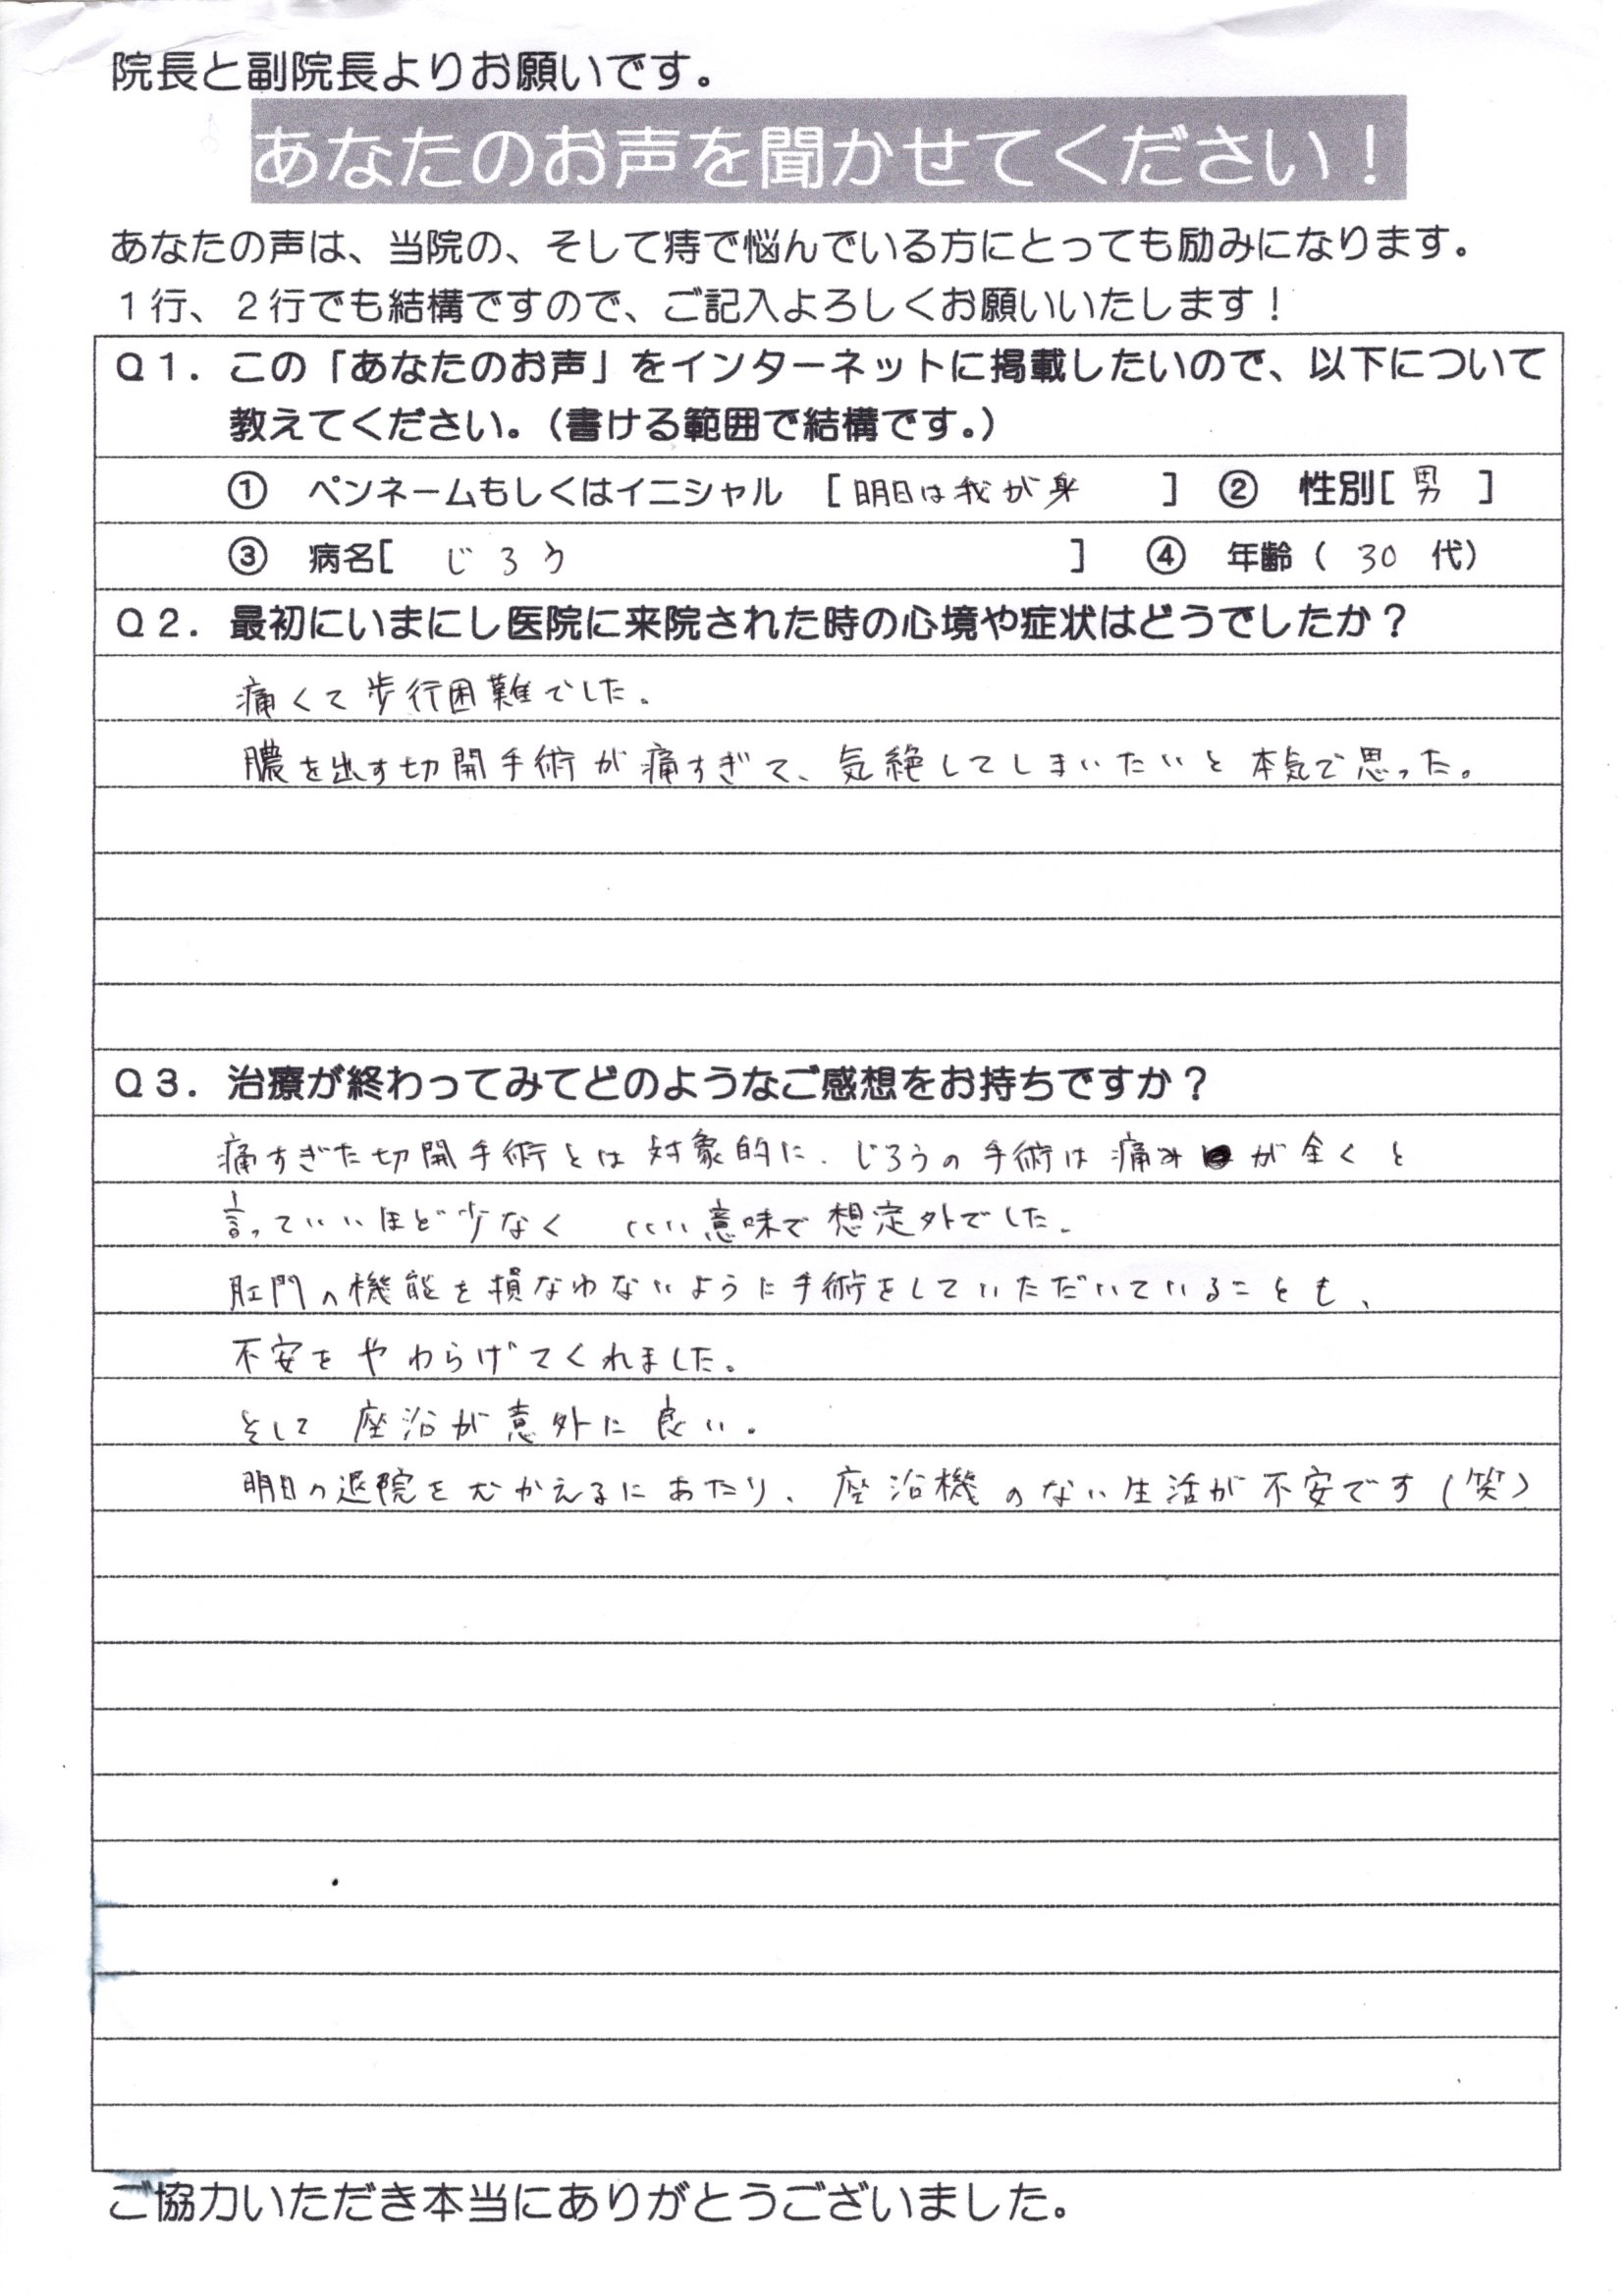 院長と副院長よりお願いです。
あなたのお声を聞かせてください！
あなたの声は、当院の、そして痔で悩んでいる方にとっても励みになります。
１行、２行でも結構ですので、ご記入よろしくお願いいたします！
Ｑ１．この「あなたのお声」をインターネットに掲載したいので、以下について
教えてください。（書ける範囲で結構です。）
① ペンネームもしくはイニシャル [ 明日は我が身 ] ② 性別[ 男 ]
③ 病名[ じろう ] ④ 年齢（ 30 代）
Ｑ２．最初にいまにし医院に来院された時の心境や症状はどうでしたか？
痛くて歩行困難でした。
膿を出す切開手術が痛すぎて、気絶してしまいたいと本気で思った。
Ｑ３．治療が終わってみてどのようなご感想をお持ちですか？
痛すぎた切開手術とは対象的に、じろうの手術は痛みが全くと
言っていいほど少なく いい意味で想定外でした。
肛門の機能を損なわないように手術をしていただいていることも、
不安をやわらげてくれました。
そして座浴が意外に良い。
明日の退院をむかえるにあたり、座浴機のない生活が不安です（笑）
ご協力いただき本当にありがとうございました。